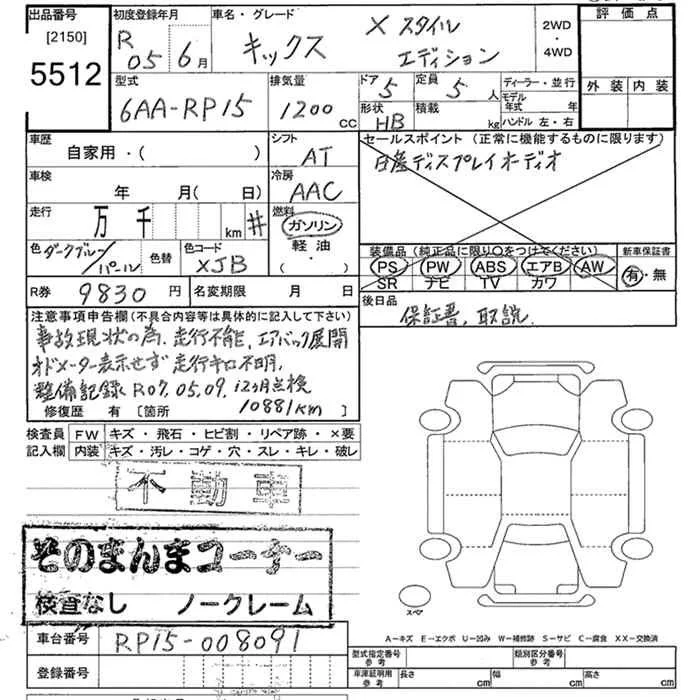 出品番号 初度登録年月 車名・グレード 2WD・4WD 評価点
[2150] R 05年 6月 キックス X スタイル エディション
5512
型式 排気量 ドア 定員 ディーラー・並行 外装 内装
6AA-RP15 1200cc 5 5人 モデル年式 年
形状 積載 kg ハンドル 左・右
HB
車歴 シフト セールスポイント (正常に機能するものに限ります)
自家用・( ) AT 日産ディスプレイオーディオ
車検 冷房
年 月(日) AAC
走行 燃料
万 千 km # ガソリン
軽油・( )
色 色替 色コード 装備品 (純正品に限り〇をつけてください) 新車保証書
ダークブルー/パール XJB PS PW ABS エアB AW 有・無
SR ナビ TV カワ
R券 9830円 名変期限 月 日 後日品
保証書、取説
注意事項申告欄(不具合内容等は具体的に記入して下さい)
事故現状の為、走行不能、エアバック展開
オドメーター表示せず 走行キロ不明、
整備記録 R07.05.09. 12ヶ月点検
10881km
修復歴 有 [箇所 ]
検査員 FW キズ・飛石・ヒビ割・リペア跡・×要
記入欄 内装 キズ・汚レ・コゲ・穴・スレ・キレ・破レ
不動車
そのまんまコーナー
検査なし ノークレーム
スペア
A−キズ E−エクボ U−凹み W−補修跡 S−サビ C−腐食 XX−交換済
車台番号 RP15-008091 型式指定番号 参考 類別区分番号 参考
登録番号 車庫証明用 参考 長さ cm 幅 cm 高さ cm